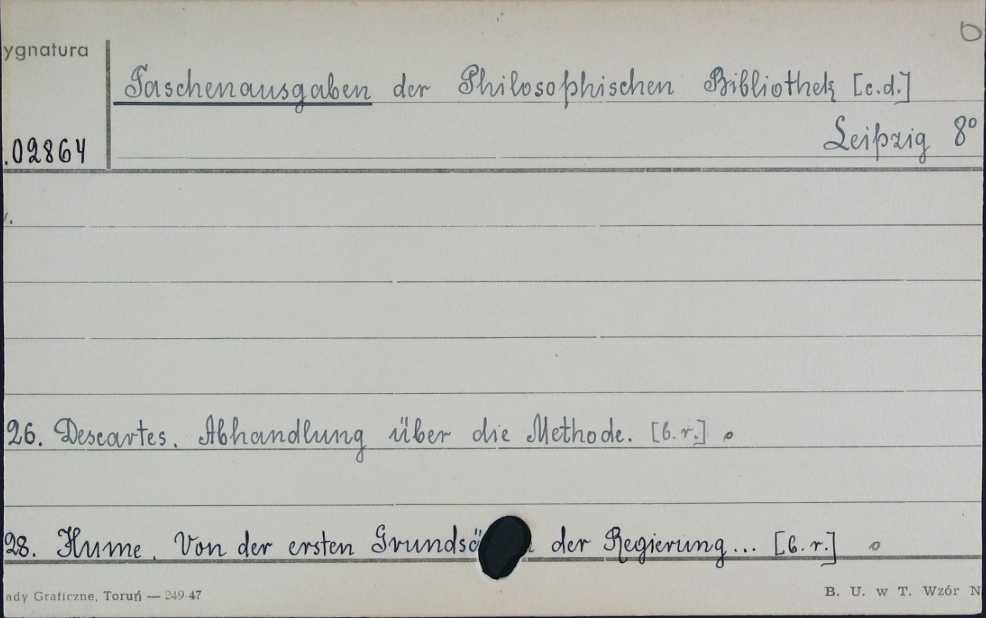 ygnatura
Taschenausgaben der Philosophischen Bibliothek [c.d.]
.02864
Leipzig 8°
26. Descartes. Abhandlung über die Methode. [b.r.]
28. Hume. Von der ersten der Regierung... [b.r.]
ady Graficzne, Toruń — 249-47
B. U. w T. Wzór N